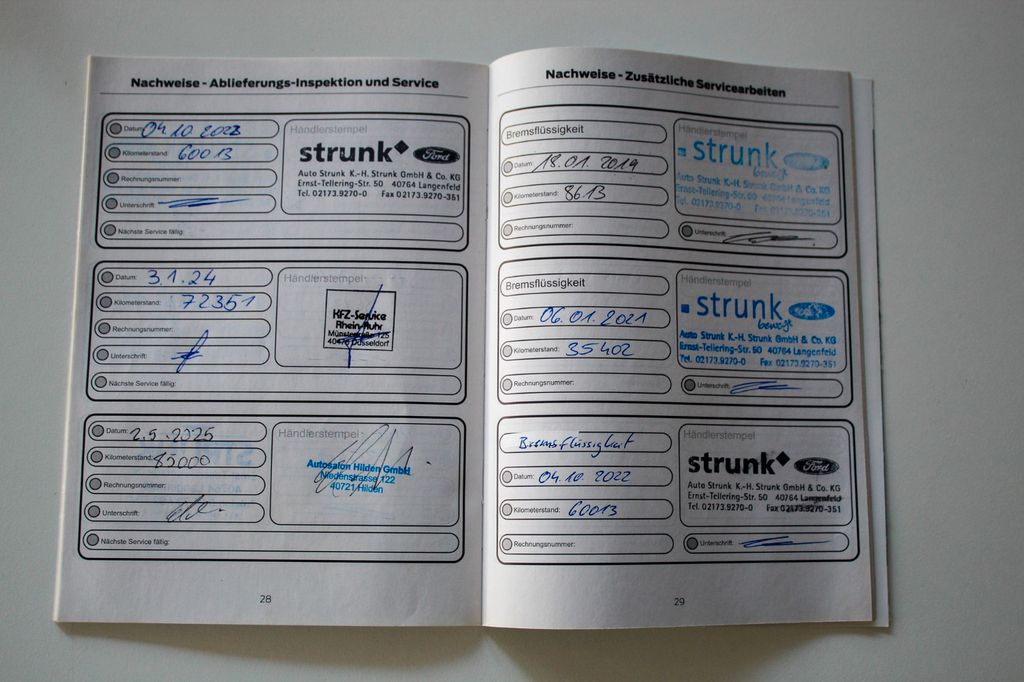 Nachweise - Ablieferungs-Inspektion und Service
Datum: 04.10.2022
Kilometerstand: 60013
Rechnungsnummer:
Unterschrift:
Nächste Service fällig:
Händlerstempel
strunk Ford
Auto Strunk K.-H. Strunk GmbH & Co. KG
Ernst-Tellering-Str. 50 40764 Langenfeld
Tel. 02173.9270-0 Fax 02173.9270-351
Datum: 3.1.24
Kilometerstand: 72351
Rechnungsnummer:
Unterschrift:
Nächste Service fällig:
Händlerstempel
KFZ-Service
Rhein-Ruhr
Münsterstraße 125
40476 Düsseldorf
Datum: 2.5.2025
Kilometerstand: 85000
Rechnungsnummer:
Unterschrift:
Nächste Service fällig:
Händlerstempel
Autosalon Hilden GmbH
Niedenstrasse 122
40721 Hilden
28
Nachweise - Zusätzliche Servicearbeiten
Bremsflüssigkeit
Datum: 18.01.2019
Kilometerstand: 8613
Rechnungsnummer:
Händlerstempel
strunk
bewegt
Auto Strunk K.-H. Strunk GmbH & Co. KG
Ernst-Tellering-Str. 50 40764 Langenfeld
Tel. 02173.9270-0 Fax 02173.9270-351
Unterschrift:
Bremsflüssigkeit
Datum: 06.01.2021
Kilometerstand: 35402
Rechnungsnummer:
Händlerstempel
strunk
bewegt
Auto Strunk K.-H. Strunk GmbH & Co. KG
Ernst-Tellering-Str. 50 40764 Langenfeld
Tel. 02173.9270-0 Fax 02173.9270-351
Unterschrift:
Bremsflüssigkeit
Datum: 04.10.2022
Kilometerstand: 60013
Rechnungsnummer:
Händlerstempel
strunk Ford
Auto Strunk K.-H. Strunk GmbH & Co. KG
Ernst-Tellering-Str. 50 40764 Langenfeld
Tel. 02173.9270-0 Fax 02173.9270-351
Unterschrift:
29